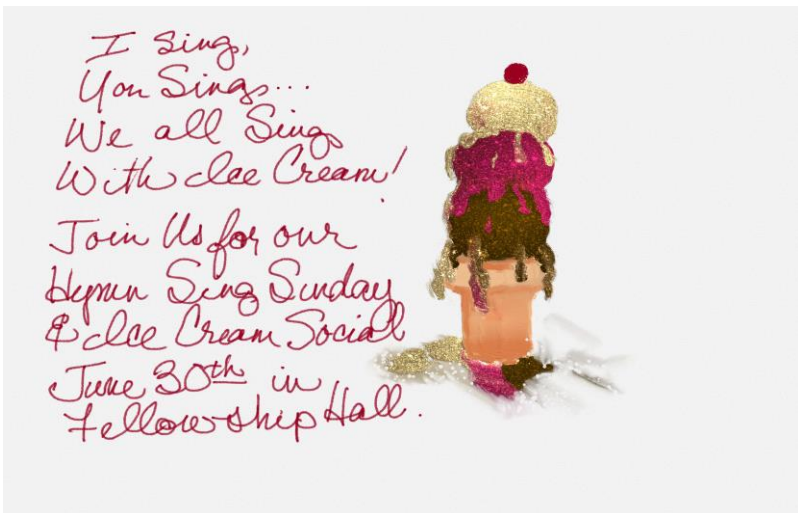 I Sing,
You Sing...
We all Sing
With Ice Cream!
Join Us for our
Hymn Sing Sunday
& Ice Cream Social
June 30th in
Fellowship Hall.